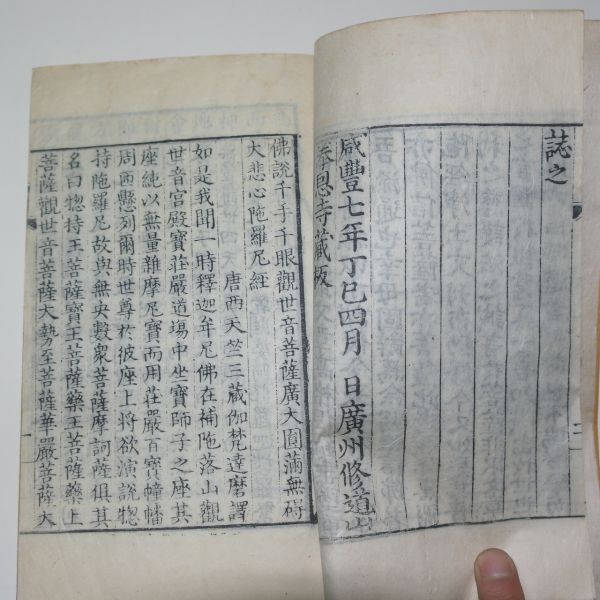 誌之
咸豐七年丁巳四月 日廣州修道山
奉恩寺藏板
佛說千手千眼觀世音菩薩廣大圓滿無碍
大悲心陁羅尼經
唐西天竺三藏伽梵達磨譯
如是我聞一時釋迦牟尼佛在補陁落山觀
世音宮殿寶莊嚴道場中坐寶師子之座其
座純以無量雜摩尼寶而用莊嚴百寶幢幡
周匝懸列爾時世尊於彼座上將欲演說惣
持陁羅尼故與無央數衆菩薩摩訶薩俱其
名曰惣持王菩薩寶王菩薩藥王菩薩藥上
菩薩觀世音菩薩大勢至菩薩華嚴菩薩大